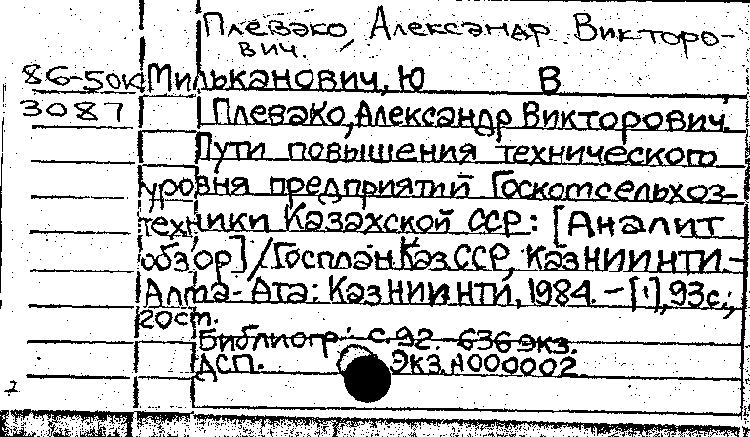 Плевако, Александр Викторо-
вич.
86-50к Мильканович, Ю В
3087 Плевако, Александр Викторович.
Пути повышения технического
уровня предприятий Госкомсельхоз-
техники Казахской ССР: [Аналит
обзор] / Госплан КазССР, КазНИИНТИ. -
Алма-Ата: КазНИИНТИ, 1984. - [1], 93с.;
20см.
Библиогр.: с. 92. 636 экз.
ДСП. Экз. N000002